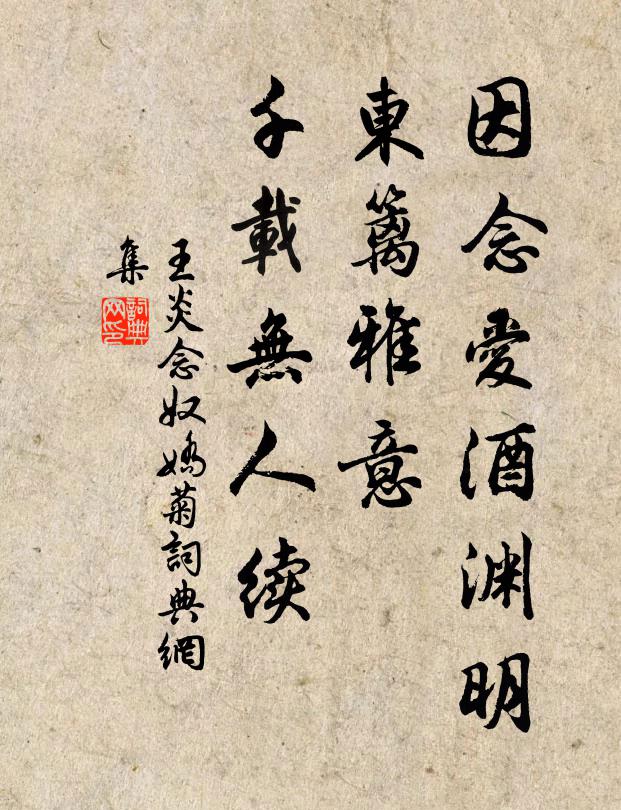 因念愛酒渊明
東籬雅意
千載無人续
王炎念奴嬌菊詞典網
集
詞典
网印